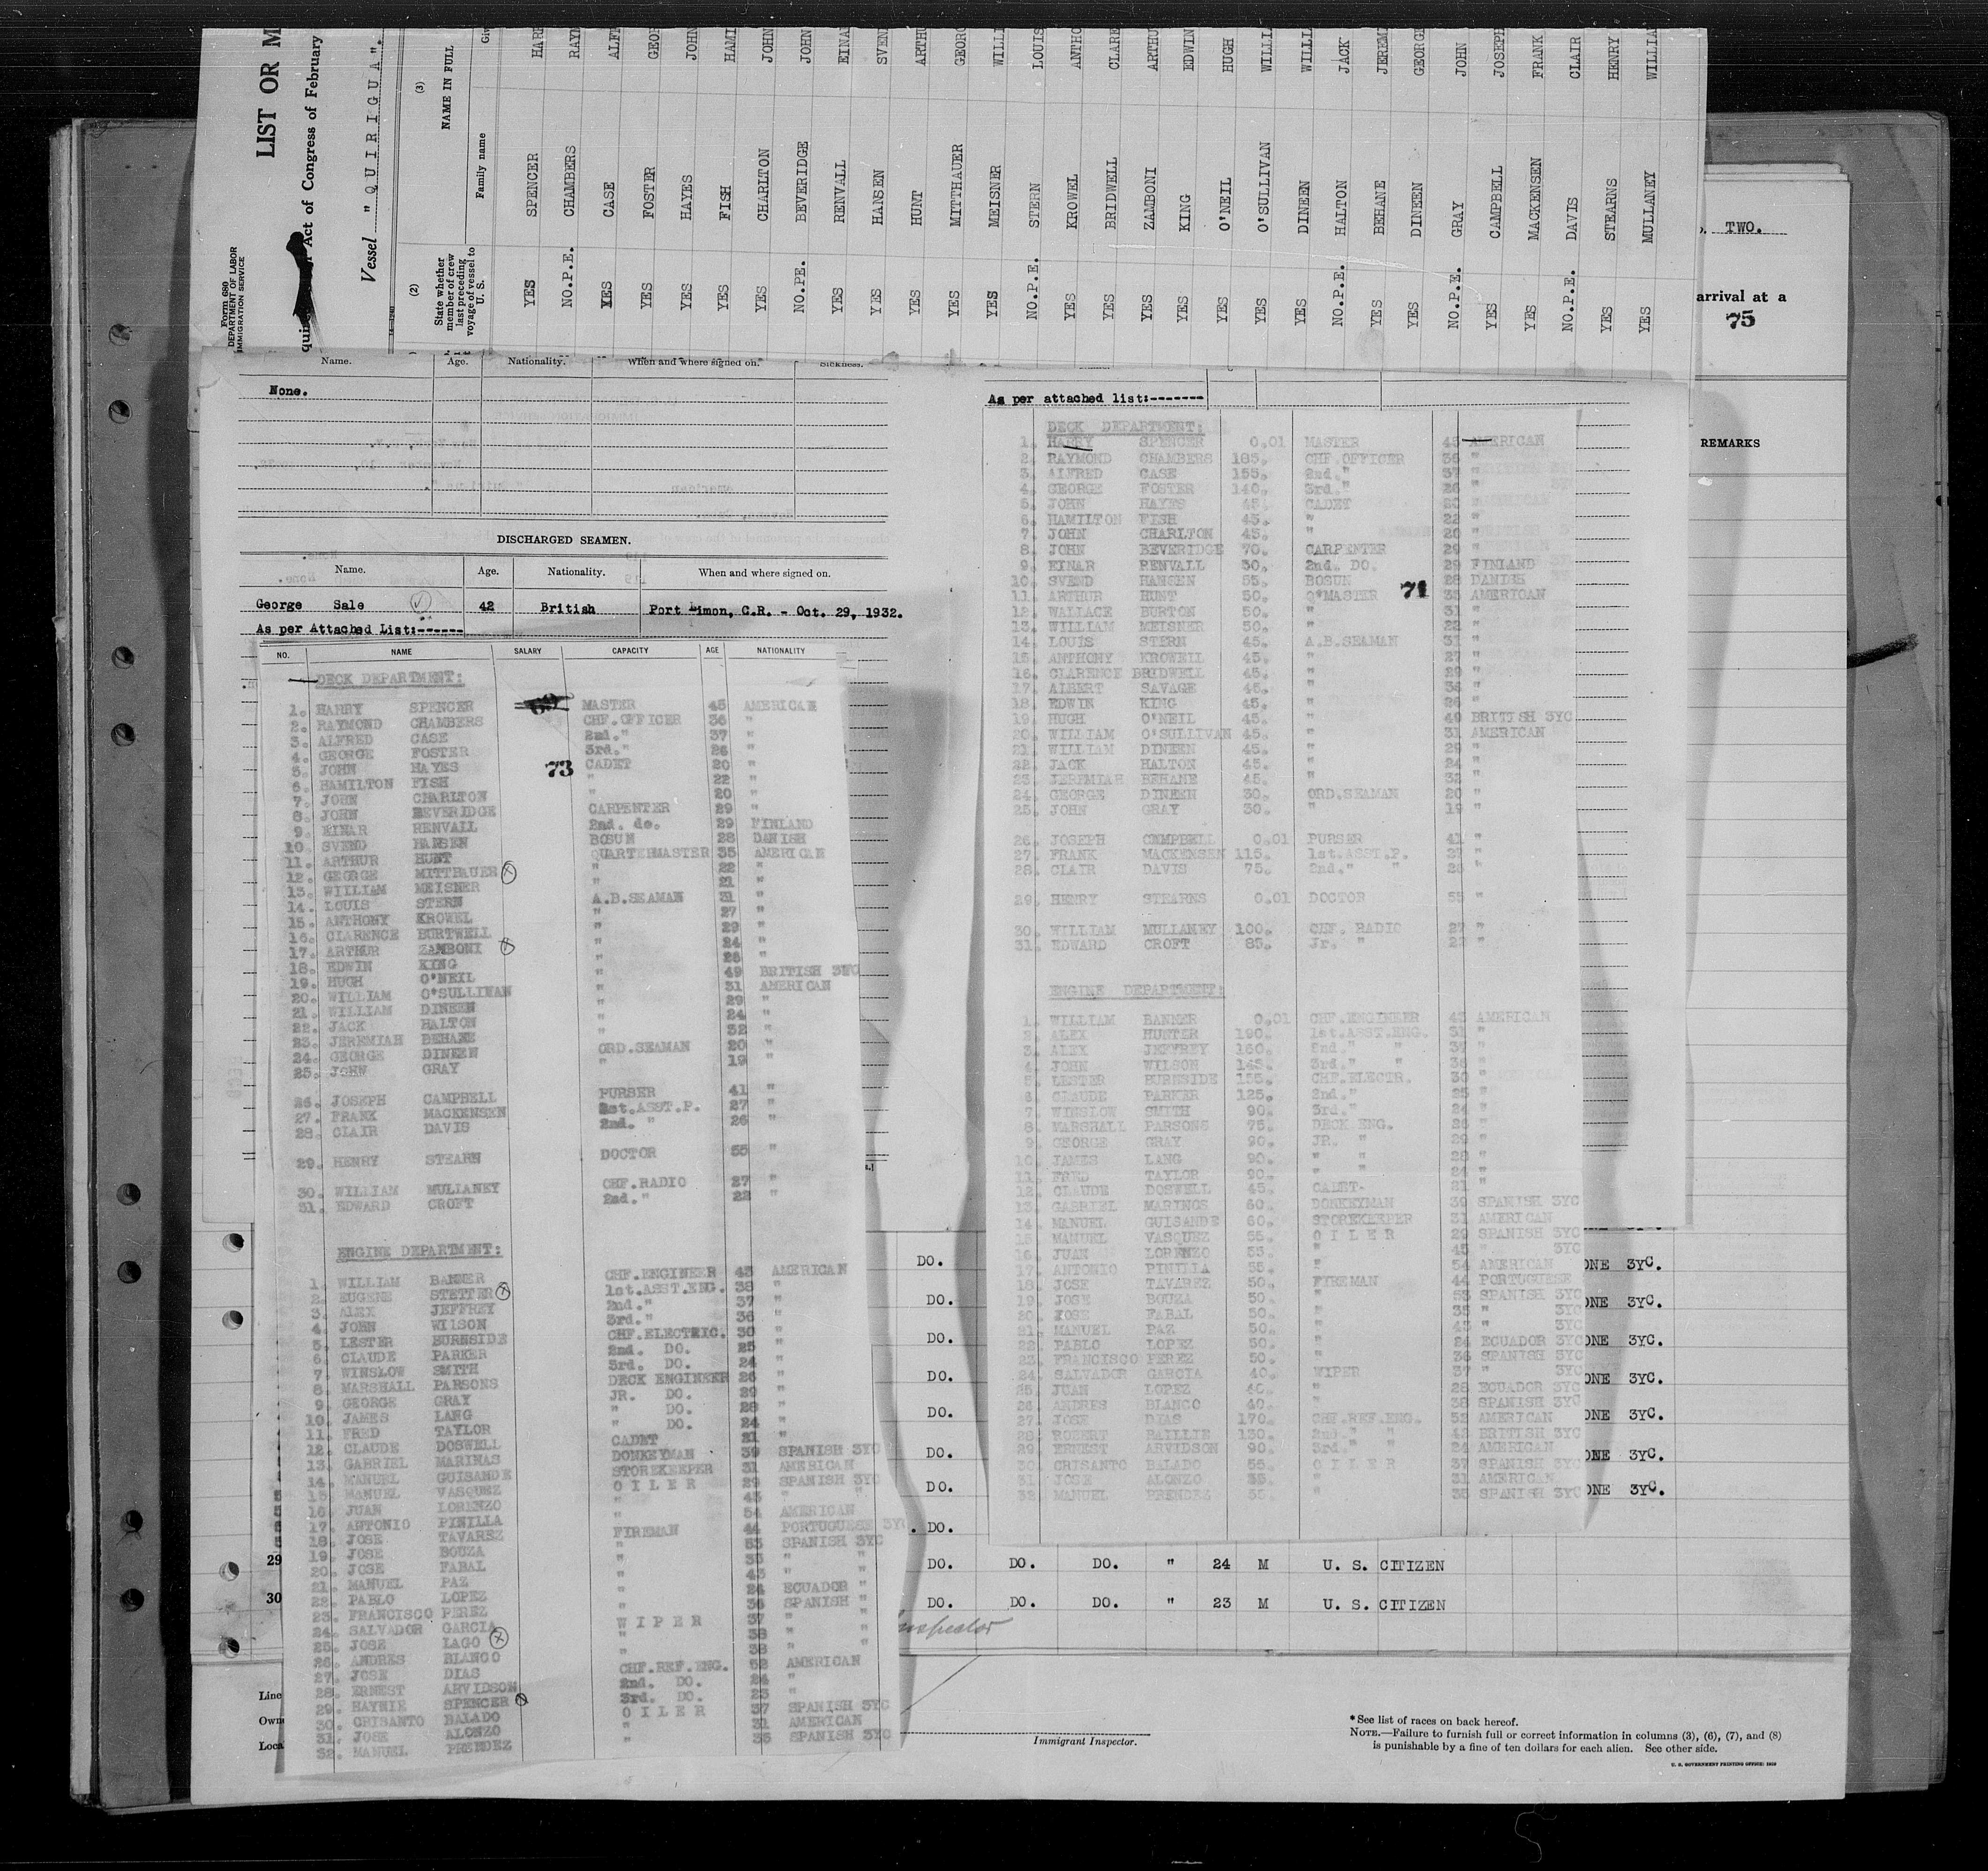 Form 689
DEPARTMENT OF LABOR
IMMIGRATION SERVICE
LIST OR M
Act of Congress of February
Vessel "QUIRIGUA".
(2)
State whether member of crew last preceding voyage of vessel to U. S.
(3)
NAME IN FULL
Family name
YES SPENCER
NO.P.E. CHAMBERS
YES CASE
YES FOSTER
YES HAYES JOHN
YES FISH
YES CHARLTON JOHN
NO.PE. BEVERIDGE JOHN
YES RENVALL
YES HANSEN
YES HUNT
YES MITTHAUER
YES MEISNER
NO.P.E. STERN LOUIS
YES KROWEL
YES BRIDWELL
YES ZAMBONI
YES KING EDWIN
YES O'NEIL HUGH
YES O'SULLIVAN
YES DINEEN
NO.P.E. HALTON JACK
YES BEHANE
YES DINEEN GEORGE
NO.P.E. GRAY JOHN
YES CAMPBELL JOSEPH
YES MACKENSEN FRANK
NO.P.E. DAVIS CLAIR
YES STEARNS HENRY
YES MULLANEY
TWO.
arrival at a
75
REMARKS
Name. Age. Nationality. When and where signed on. Sickness.
None.
DISCHARGED SEAMEN.
Name. Age. Nationality. When and where signed on.
George Sale 42 British Port Limon, C.R. - Oct. 29, 1932.
As per Attached List:------
NO. NAME SALARY CAPACITY AGE NATIONALITY
DECK DEPARTMENT:
1. HARRY SPENCER MASTER 45 AMERICAN
2. RAYMOND CHAMBERS CHF.OFFICER 36 "
3. ALFRED CASE 2nd." 37 "
4. GEORGE FOSTER 3rd." 26 "
73
5. JOHN HAYES CADET 20 "
6. HAMILTON FISH " 22 "
7. JOHN CHARLTON " 20 "
8. JOHN BEVERIDGE CARPENTER 29 "
9. EINAR RENVALL 2nd. do. 29 FINLAND
10. SVEND HANSEN BOSUN 28 DANISH
11. ARTHUR HUNT QUARTERMASTER 35 AMERICAN
12. GEORGE MITTHAUER " 22 "
13. WILLIAM MEISNER " 21 "
14. LOUIS STERN A.B.SEAMAN 31 "
15. ANTHONY KROWEL " 27 "
16. CLARENCE BURTWELL " 29 "
17. ARTHUR ZAMBONI " 24 "
18. EDWIN KING " 26 "
19. HUGH O'NEIL " 49 BRITISH 3YC
20. WILLIAM O'SULLIVAN " 31 AMERICAN
21. WILLIAM DINEEN " 29 "
22. JACK HALTON " 24 "
23. JEREMIAH BEHANE " 32 "
24. GEORGE DINEEN ORD.SEAMAN 20 "
25. JOHN GRAY " 19 "
26. JOSEPH CAMPBELL PURSER 41 "
27. FRANK MACKENSEN 1st.ASST.P. 27 "
28. CLAIR DAVIS 2nd. " 26 "
29. HENRY STEARN DOCTOR 55 "
30. WILLIAM MULLANEY CHF.RADIO 27 "
31. EDWARD CROFT 2nd." 22 "
ENGINE DEPARTMENT:
1. WILLIAM BANNER CHF.ENGINEER 43 AMERICAN
2. EUGENE STETTER 1st.ASST.ENG. 38 "
3. ALEX JEFFREY 2nd." 37 "
4. JOHN WILSON 3rd." 36 "
5. LESTER BURNSIDE CHF.ELECTRIC. 30 "
6. CLAUDE PARKER 2nd. DO. 25 "
7. WINSLOW SMITH 3rd. DO. 24 "
8. MARSHALL PARSONS DECK ENGINEER 26 "
9. GEORGE GRAY JR. DO. 29 "
10. JAMES LANG " DO. 28 "
11. FRED TAYLOR " DO. 24 "
12. CLAUDE DOSWELL CADET 21 "
13. GABRIEL MARINAS DONKEYMAN 39 SPANISH 3YC
14. MANUEL GUISANDE STOREKEEPER 31 AMERICAN
15. MANUEL VASQUEZ OILER 29 SPANISH 3YC
16. JUAN LORENZO " 45 " "
17. ANTONIO PINILLA " 54 AMERICAN
18. JOSE TAVAREZ FIREMAN 44 PORTUGUESE 3YC
19. JOSE BOUZA " 53 SPANISH 3YC
20. JOSE FABAL " 35 " "
21. MANUEL PAZ " 43 " "
22. PABLO LOPEZ " 24 ECUADOR "
23. FRANCISCO PEREZ " 36 SPANISH "
24. SALVADOR GARCIA WIPER 37 " "
25. JOSE LAGO " 38 " "
26. ANDRES BLANCO " 38 " "
27. JOSE DIAS CHF.REF.ENG. 52 AMERICAN
28. ERNEST ARVIDSON 2nd. DO. 24 "
29. HAYNIE SPENCER 3rd. DO. 23 "
30. CRISANTO BALADO OILER 37 SPANISH 3YC
31. JOSE ALONZO " 31 AMERICAN
32. MANUEL PRENDEZ " 35 SPANISH 3YC
As per attached list:-------
DECK DEPARTMENT:
1. HARRY SPENCER 0.01 MASTER 45 AMERICAN
2. RAYMOND CHAMBERS 185. CHF.OFFICER 36 "
3. ALFRED CASE 155. 2nd." 37 "
4. GEORGE FOSTER 140. 3rd." 26 "
5. JOHN HAYES 45. CADET 20 "
6. HAMILTON FISH 45. " 22 "
7. JOHN CHARLTON 45. " 20 "
8. JOHN BEVERIDGE 70. CARPENTER 29 "
9. EINAR RENVALL 30. 2nd. DO. 29 FINLAND
10. SVEND HANSEN 55. BOSUN 28 DANISH
71
11. ARTHUR HUNT 50. Q*MASTER 35 AMERICAN
12. WALLACE BURTON 50. " 31 "
13. WILLIAM MEISNER 50. " 22 "
14. LOUIS STERN 45. A.B.SEAMAN 31 "
15. ANTHONY KROWELL 45. " 27 "
16. CLARENCE BRIDWELL 45. " 29 "
17. ALBERT SAVAGE 45. " 36 "
18. EDWIN KING 45. " 26 "
19. HUGH O'NEIL 45. " 49 BRITISH 3YC
20. WILLIAM O'SULLIVAN 45. " 31 AMERICAN
21. WILLIAM DINEEN 45. " 29 "
22. JACK HALTON 45. " 24 "
23. JEREMIAH BEHANE 45. " 32 "
24. GEORGE DINEEN 30. ORD.SEAMAN 20 "
25. JOHN GRAY 30. " 19 "
26. JOSEPH CMMPBELL 0.01 PURSER 41 "
27. FRANK MACKENSEN 115. 1st.ASST.P. 27 "
28. CLAIR DAVIS 75. 2nd." " 26 "
29. HENRY STEARNS 0.01 DOCTOR 55 "
30. WILLIAM MULLANEY 100. CHF. RADIO 27 "
31. EDWARD CROFT 85. Jr. " 22 "
ENGINE DEPARTMENT:
1. WILLIAM BANNER 0.01 CHF.ENGINEER 43 AMERICAN
2. ALEX HUNTER 190. 1st.ASST.ENG. 31 "
3. ALEX JEFFREY 160. 2nd." " 37 "
4. JOHN WILSON 145. 3rd." 36 "
5. LESTER BURNSIDE 155. CHF.ELECTR. 30 "
6. CLAUDE PARKER 125. 2nd." 25 "
7. WINSLOW SMITH 90. 3rd." 24 "
8. MARSHALL PARSONS 75. DECK ENG. 26 "
9. GEORGE GRAY 90. JR. " 29 "
10. JAMES LANG 90. " " 28 "
11. FRED TAYLOR 90. " " 24 "
12. CLAUDE DOSWELL 45. CADET- 21 "
13. GABRIEL MARINOS 60. DONKEYMAN 39 SPANISH 3YC
14. MANUEL GUISANDE 60. STOREKEEPER 31 AMERICAN
15. MANUEL VASQUEZ 55. OILER 29 SPANISH 3YC
16. JUAN LORENZO 55. " 45 " 3YC
17. ANTONIO PINILLA 55. " 54 AMERICAN
18. JOSE TAVAREZ 50. FIREMAN 44 PORTUGUESE
19. JOSE BOUZA 50. " 53 SPANISH 3YC
20. JOSE FABAL 50. " 35 " 3YC
21. MANUEL PAZ 50. " 43 " 3YC
22. PABLO LOPEZ 50. " 24 ECUADOR 3YC
23. FRANCISCO PEREZ 50. " 36 SPANISH 3YC
24. SALVADOR GARCIA 40. WIPER 37 " 3YC
25. JUAN LOPEZ 40. " 28 ECUADOR 3YC
26. ANDRES BLANCO 40. " 38 SPANISH 3YC
27. JOSE DIAS 170. CHF.REF.ENG. 52 AMERICAN
28. ROBERT BAILLIE 130. 2nd." " 43 BRITISH 3YC
29. ERNEST ARVIDSON 90. 3rd." " 24 AMERICAN
30. CRISANTO BALADO 55. OILER 37 SPANISH 3YC
31. JOSE ALONZO 55. " 31 AMERICAN
32. MANUEL PRENDEZ 55. " 35 SPANISH 3YC
DO. ONE 3YC.
DO. ONE 3YC.
DO. ONE 3YC.
DO. ONE 3YC.
DO. ONE 3YC.
DO. ONE 3YC.
DO. ONE 3YC.
DO.
29 DO. DO. DO. " 24 M U. S. CITIZEN
30 DO. DO. DO. " 23 M U. S. CITIZEN
Inspector
Line
Own
Loca
Immigrant Inspector.
*See list of races on back hereof.
NOTE.—Failure to furnish full or correct information in columns (3), (6), (7), and (8)
is punishable by a fine of ten dollars for each alien. See other side.
U. S. GOVERNMENT PRINTING OFFICE: 1929